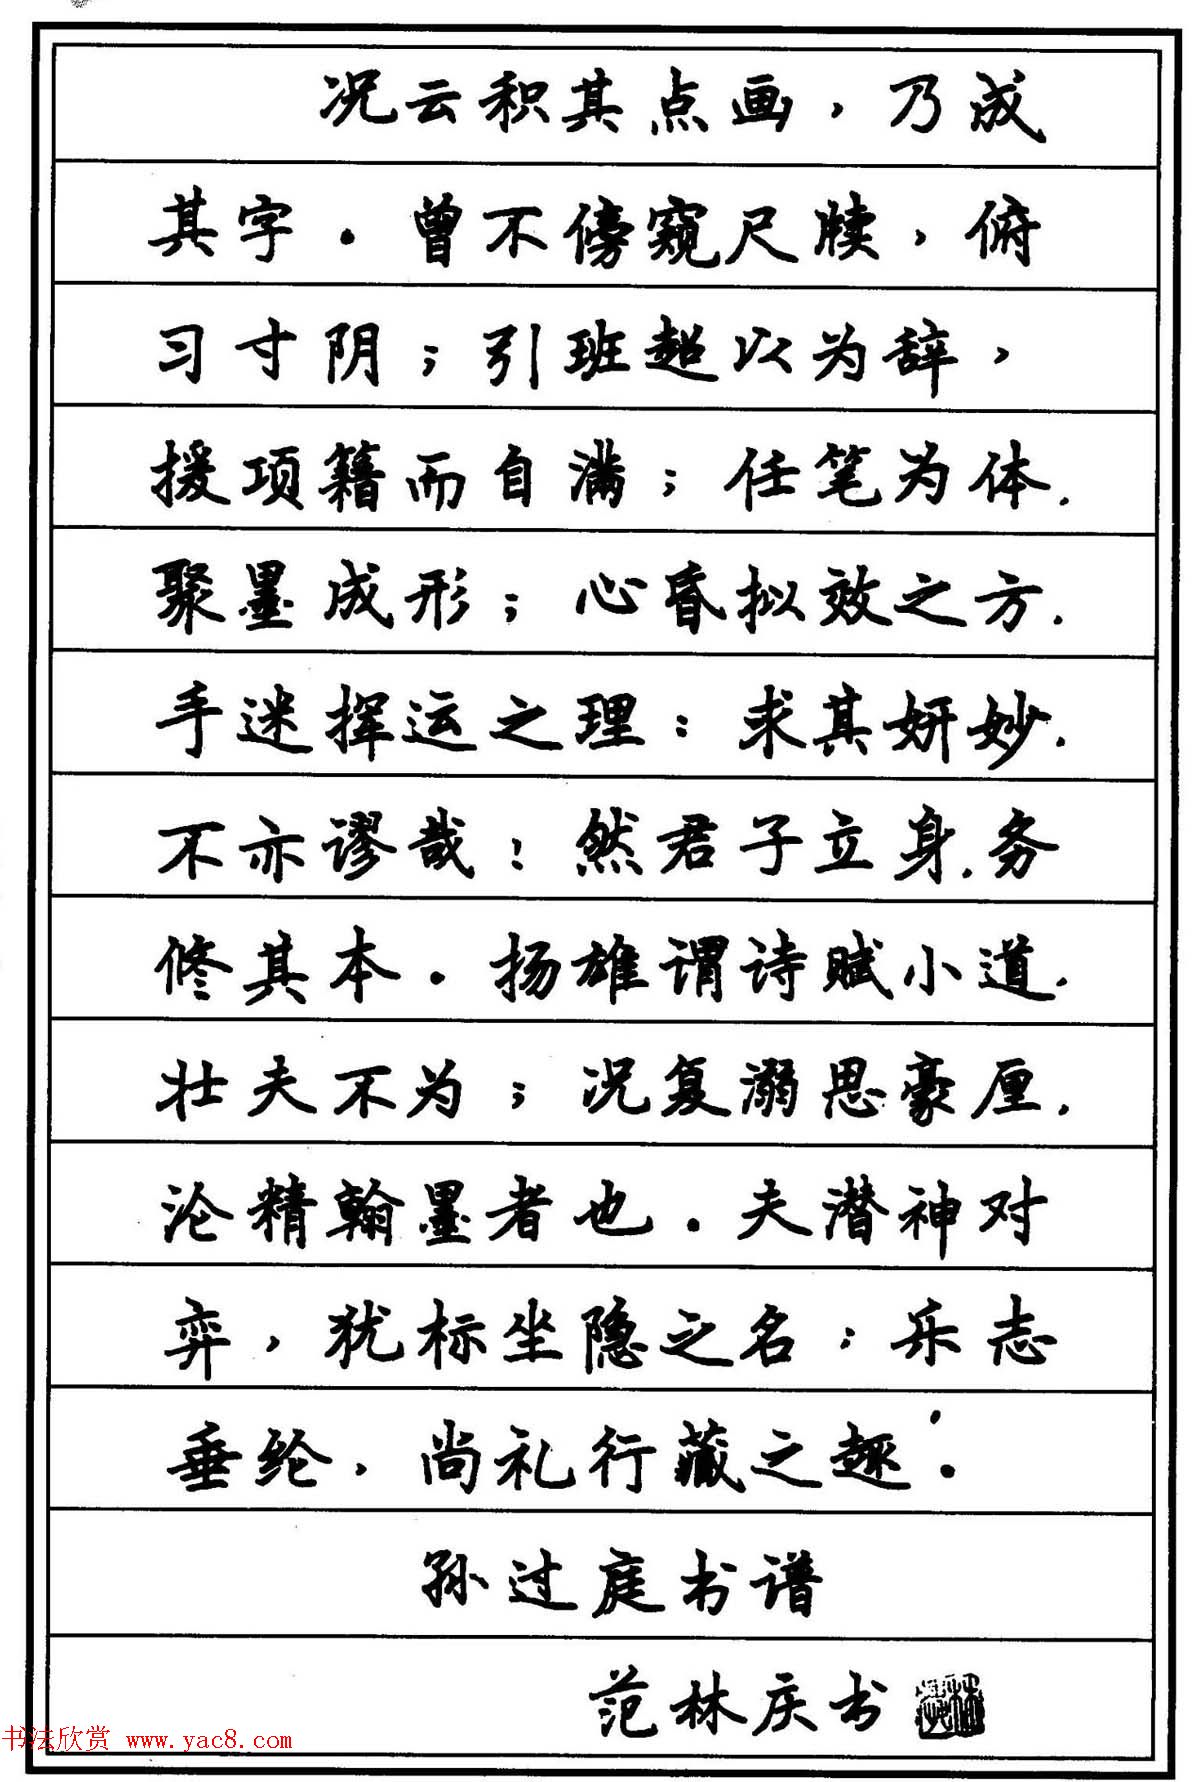 况云积其点画，乃成
其字．曾不傍窥尺牍，俯
习寸阴；引班超以为辞，
援项籍而自满；任笔为体．
聚墨成形；心昏拟效之方．
手迷挥运之理：求其妍妙．
不亦谬哉！然君子立身．务
修其本．扬雄谓诗赋小道．
壮夫不为；况复溺思豪厘．
沦精翰墨者也．夫潜神对
弈，犹标坐隐之名；乐志
垂纶，尚礼行藏之趣．
孙过庭书谱
范林庆书
书法欣赏 www.yac8.com